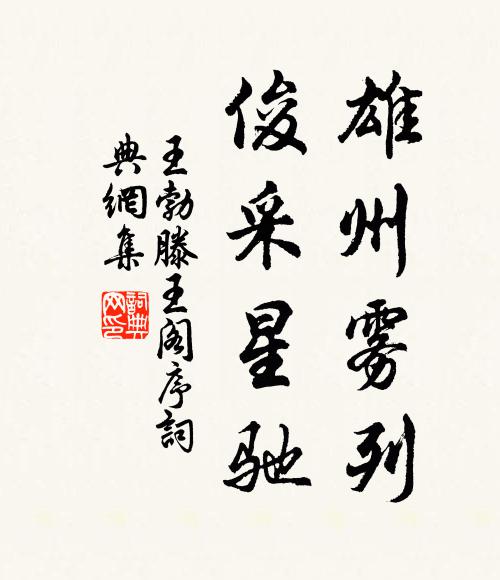 雄州雾列
俊采星驰
王勃滕王阁序詞
典網集
詞典
网印